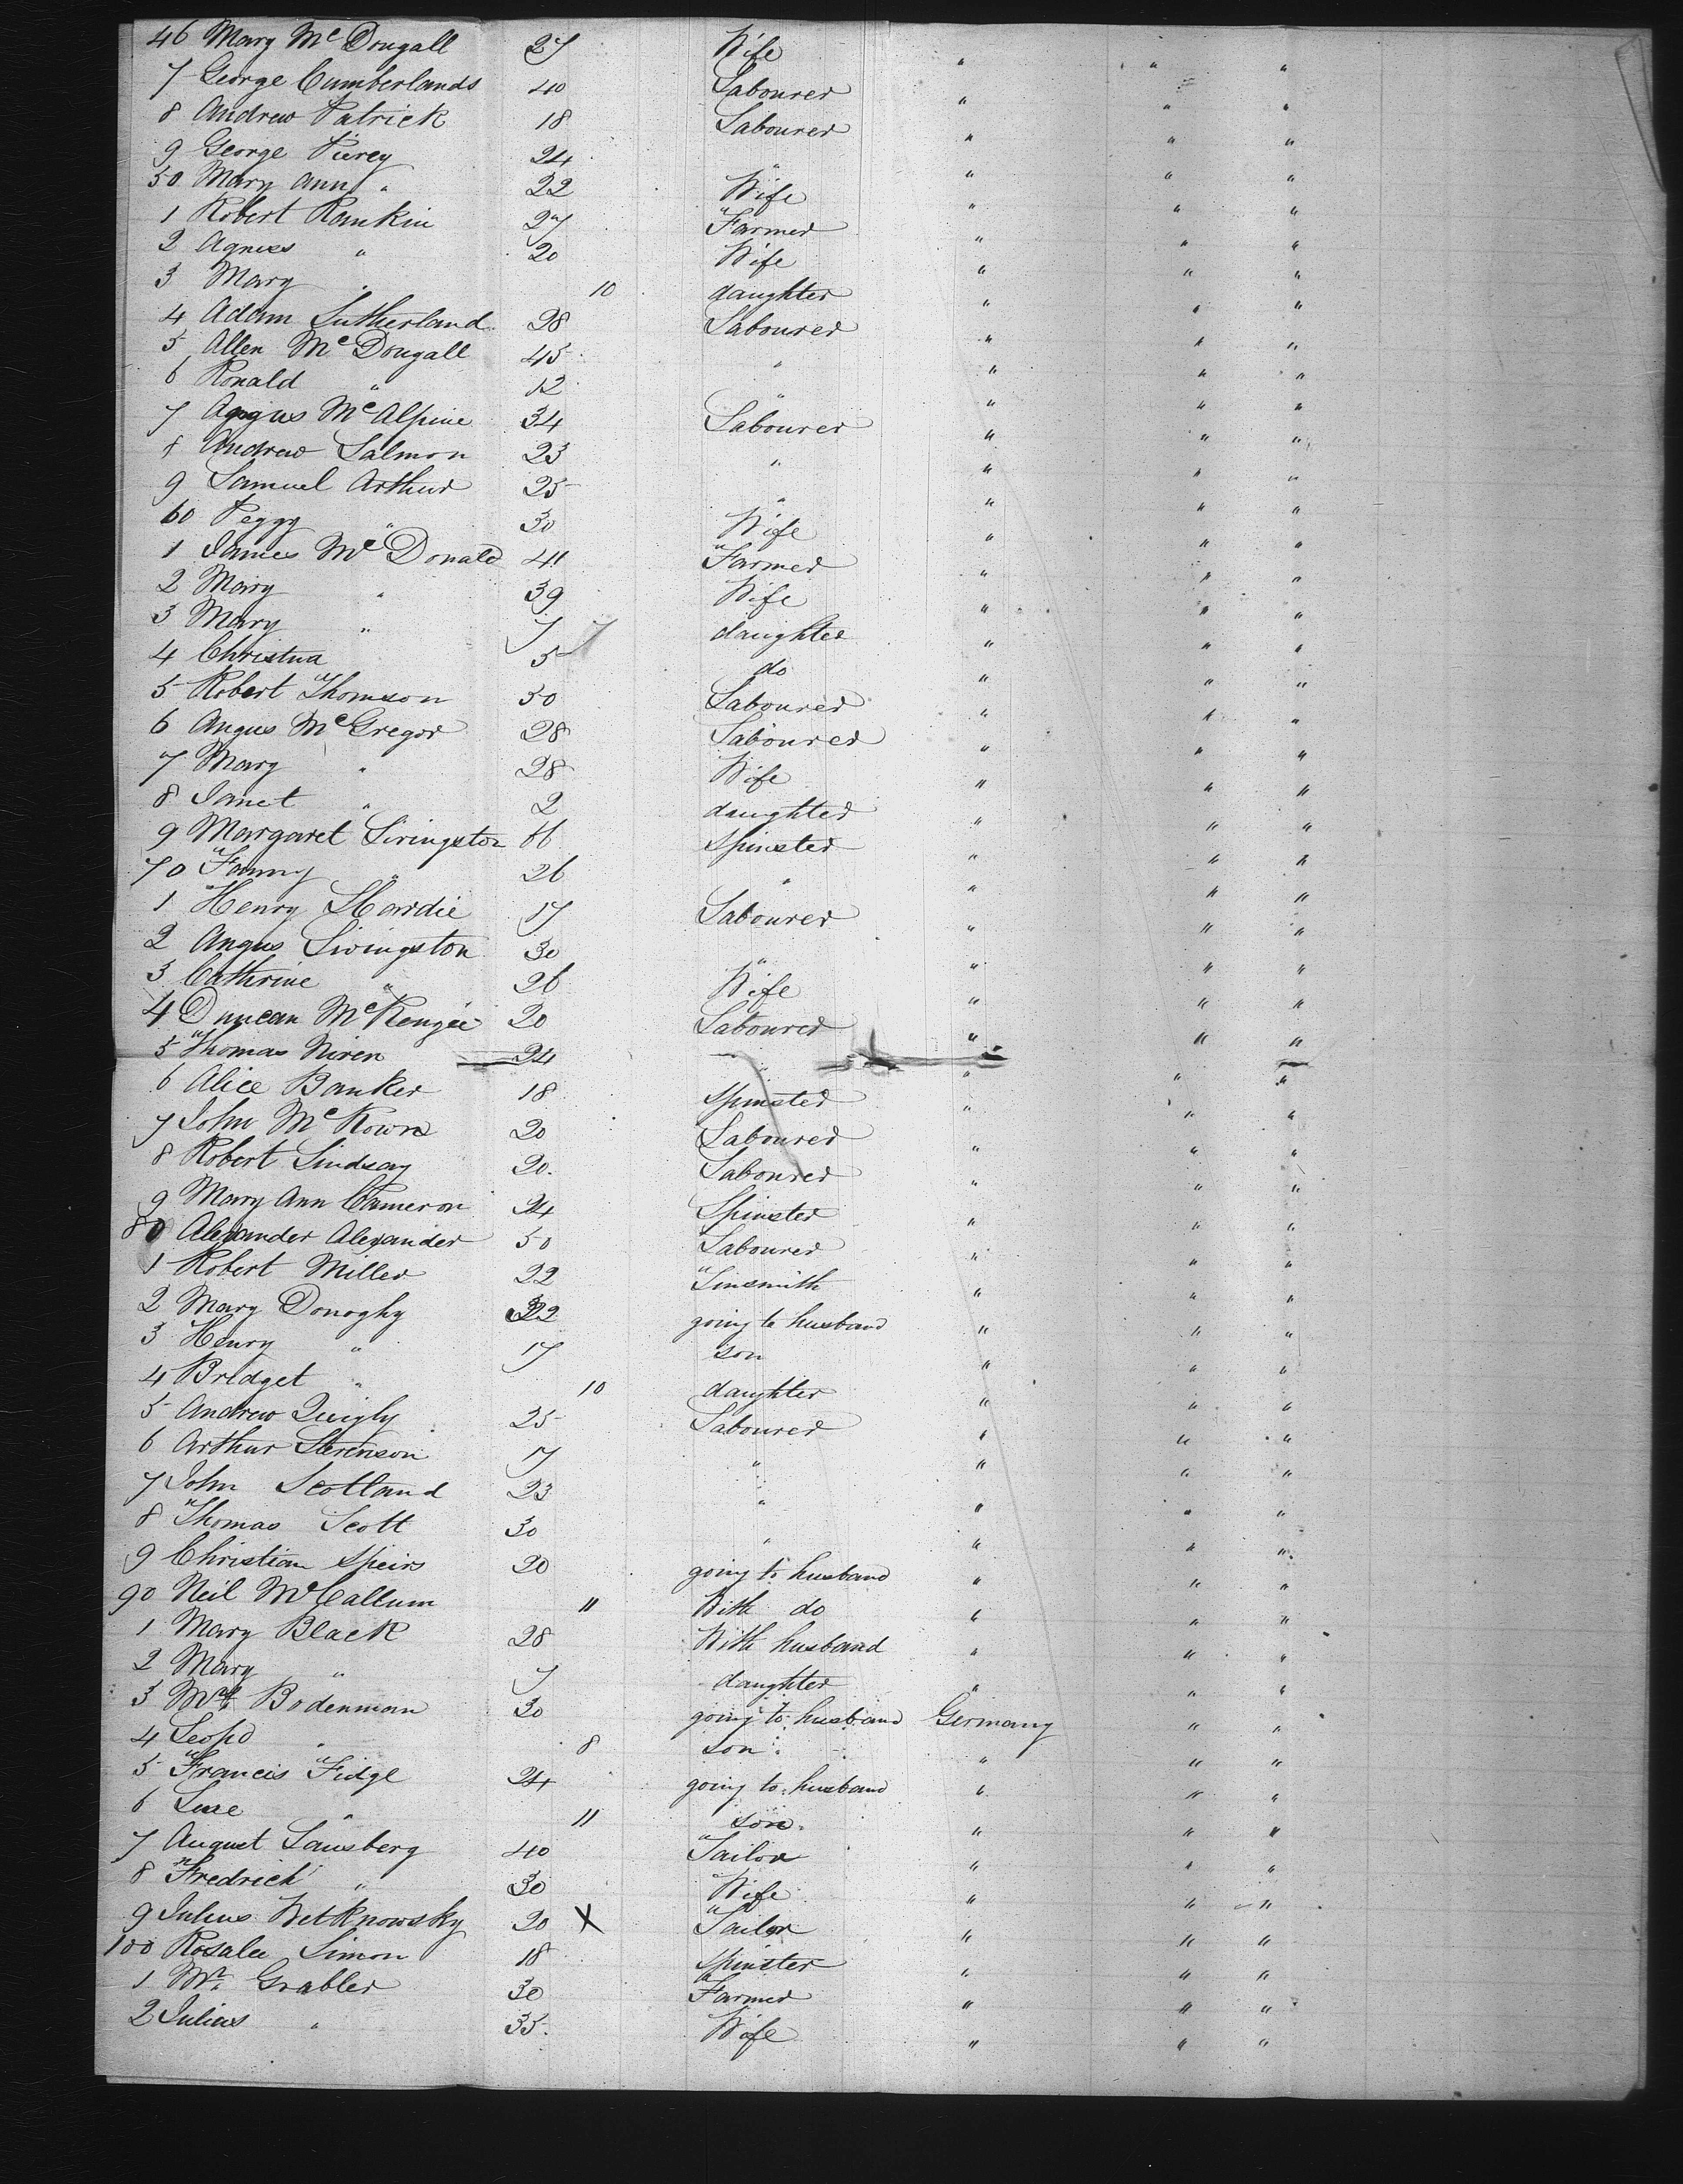 46 Mary McDougall 27 Wife " " "
7 George Cumberlands 40 Labourer " " "
8 Andrew Patrick 18 Labourer " " "
9 George Purey 24 " " " "
50 Mary Ann " 22 Wife " " "
1 Robert Rankin 27 Farmer " " "
2 Agness " 20 Wife " " "
3 Mary " 10 daughter " " "
4 Adam Sutherland 28 Labourer " " "
5 Allen McDougall 45 " " " "
6 Ronald " 12 " " " "
7 Angus McAlpine 34 Labourer " " "
8 Andrew Salmon 23 " " " "
9 Samuel Arthur 25 " " " "
60 Peggy " 30 Wife " " "
1 James McDonald 41 Farmer " " "
2 Mary " 39 Wife " " "
3 Mary " 7 7 daughter " " "
4 Christna 5 do " " "
5 Robert Thomson 50 Labourer " " "
6 Angus McGregor 28 Labourer " " "
7 Mary " 28 Wife " " "
8 Janet " 2 daughter " " "
9 Margaret Livingston 66 Spinster " " "
70 Fanny " 26 " " " "
1 Henry Hardie 17 Labourer " " "
2 Angus Livingston 30 " " " "
3 Cathrine " 26 Wife " " "
4 Duncan McKenzie 20 Labourer " " "
5 Thomas Niven 24 " " " "
6 Alice Banker 18 Spinster " " "
7 John McKown 20 Labourer " " "
8 Robert Lindsay 20 Labourer " " "
9 Mary Ann Cameron 24 Spinster " " "
80 Alexander Alexander 50 Labourer " " "
1 Robert Miller 22 Tinsmith " " "
2 Mary Donoghy 32 going to husband " " "
3 Henry " 17 son " " "
4 Bridget " 10 daughter " " "
5 Andrew Quigly 25 Labourer " " "
6 Arthur Stevenson 17 " " " "
7 John Scotland 23 " " " "
8 Thomas Scott 30 " " " "
9 Christian Speirs 20 going to husband " " "
90 Neil McCallum 11 With do " " "
1 Mary Black 28 With husband " " "
2 Mary " 7 daughter " " "
3 Bodenman 30 going to husband Germany " "
4 Leopd " 8 son " " "
5 Francis Fidge 24 going to husband " " "
6 " 11 son " " "
7 August Lansberg 40 Tailor " " "
8 Fredrich " 30 Wife " " "
9 Julius Wetknowsky 20 X Tailor " " "
100 Rosalee Simon 18 Spinster " " "
1 Mr. Grabler 30 Farmer " " "
2 Julius " 35 Wife " " "